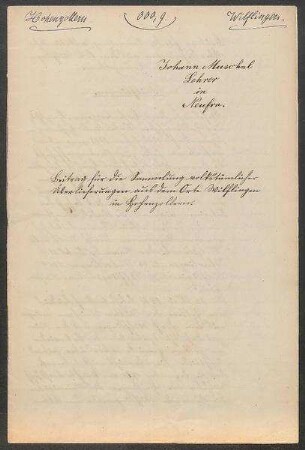 Hohenzollern
000,9
Wilflingen.
Johann Muschel
Lehrer
in
Neufra.
Beitrag für die Sammlung volkstümlicher
Überlieferungen aus dem Orte Wilflingen
in Hohenzollern.